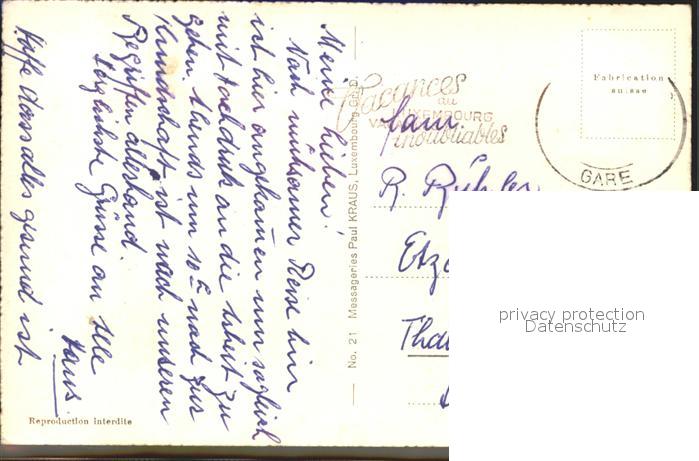 Meine Lieben!
Nach mühsamer Reise hin
ist hier angekommen um sogleich
mit Nachdruck an die Arbeit zu
gehen. Abends um 10 noch zur
Kundschaft ist nach unseren
Begriffen allerhand
Herzlichste Grüsse an alle
Hans.
Hoffe dass alles gesund ist
Reproduction interdite
No. 21 Messageries Paul KRAUS, Luxembourg Gr. D.
Vacances
au
LUXEMBOURG
VACANCES
inoubliables
Fabrication
suisse
GARE
Fam
R. Bühler
Etz
Thal
privacy protection
Datenschutz